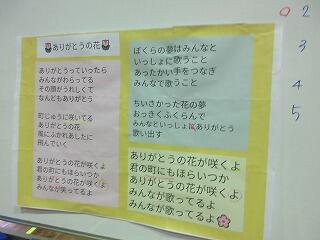 ありがとうの花
ありがとうっていったら
みんながわらってる
その顔がうれしくて
なんどもありがとう
町じゅうに咲いてる
ありがとうの花
風にふかれあしたに
飛んでいく
ありがとうの花が咲くよ
君の町にもほらいつか
ありがとうの花が咲くよ
みんなが笑ってるよ
ぼくらの夢はみんなと
いっしょに歌うこと
あったかい手をつなぎ
みんなで歌うこと
ちいさかった花の夢
おっきくふくらんで
みんなといっしょにありがとう
歌い出す
ありがとうの花が咲くよ
君の町にもほらいつか
ありがとうの花が咲くよ
みんなが歌ってるよ
みんなが歌ってるよ
2
3
4
5